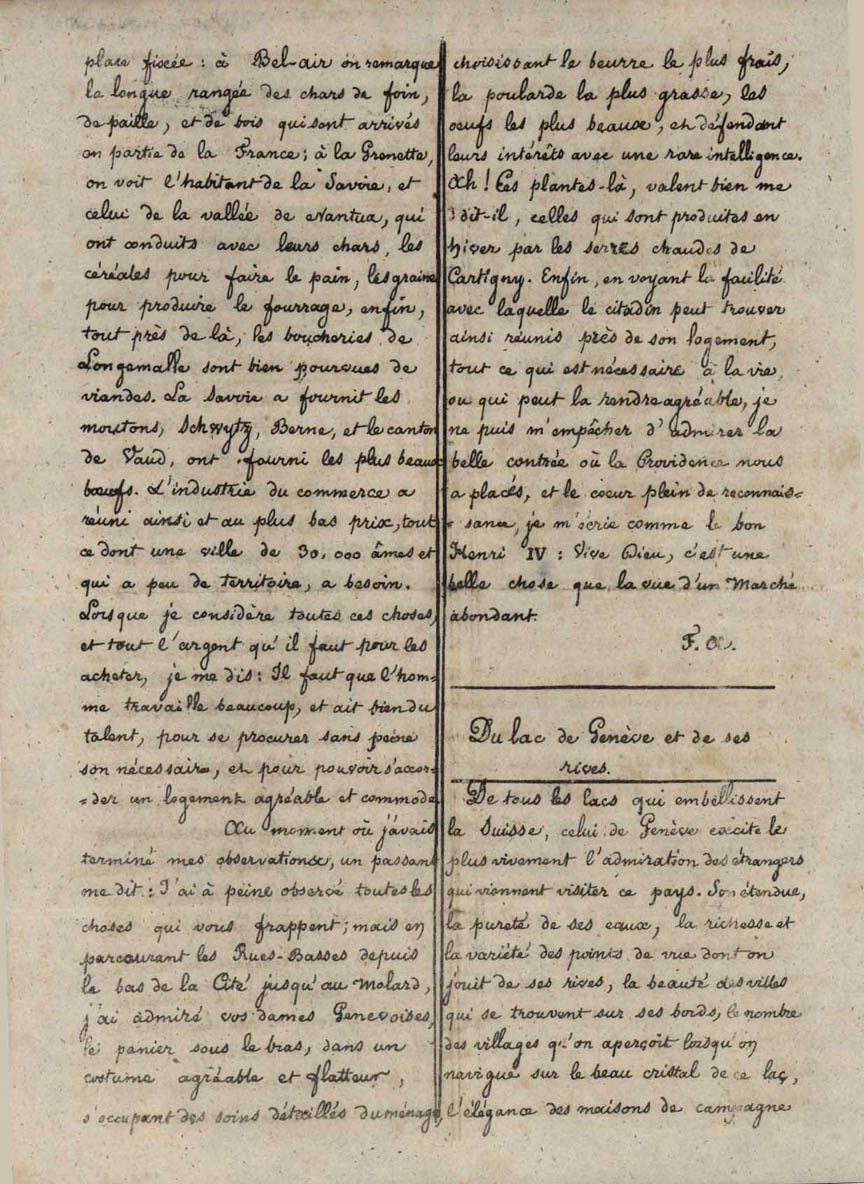 place fixée : à Bel-air on remarque
la longue rangée des chars de foin,
de paille, et de bois qui sont arrivés
en partie de la France ; à la Grenette,
on voit l'habitant de la Savoie, et
celui de la vallée de Nantua, qui
ont conduits avec leurs chars, les
céréales pour faire le pain, les graine
pour produire le fourrage, enfin,
tout près de là, les boucheries de
Longemalle sont bien pourvues de
viandes. La Savoie a fournit les
moutons, Schwytz, Berne, et le canton
de Vaud, ont fourni les plus beaux
bœufs. L'industrie du commerce a
réuni ainsi et au plus bas prix, tout
ce dont une ville de 30,000 âmes et
qui a peu de territoire, a besoin.
Lorsque je considère toutes ces choses,
et tout l'argent qu'il faut pour les
acheter, je me dis : Il faut que l'hom=
me travaille beaucoup, et ait bien du
talent, pour se procurer sans peine
son nécessaire, et pour pouvoir s'accor-
=der un logement agréable et commode.
Au moment où j'avais
terminé mes observations, un passant
me dit : J'ai à peine observé toutes les
choses qui vous frappent ; mais en
parcourant les Rues-Basses depuis
le bas de la Cité jusqu'au Molard,
j'ai admiré vos dames Genevoises,
le panier sous le bras, dans un
costume agréable et flatteur,
s'occupant des soins détaillés du ménage,
choisissant le beurre le plus frais,
la poularde la plus grasse, les
oeufs les plus beaux, et défendant
leurs intérêts avec une rare intelligence.
Ah ! Ces plantes-là, valent bien me
dit-il, celles qui sont produites en
hiver par les serres chaudes de
Cartigny. Enfin, en voyant la facilité
avec laquelle le citadin peut trouver
ainsi réunis près de son logement,
tout ce qui est nécessaire à la vie,
ou qui peut la rendre agréable, je
ne puis m'empâcher d'admirer la
belle contrée où la Providence nous
a placés, et le coeur plein de reconnais=
=sance, je m'écrie comme le bon
Henri IV : Vive Dieu, c'est une
belle chose que la vue d'un Marché
abondant.
F. A.
Du lac de Genève et de ses
rives.
De tous les lacs qui embéllissent
la Suisse, celui de Genève excite le
plus vivement l'admiration des étrangers
qui viennent visiter ce pays. Son étendue,
la pureté de ses eaux, la richesse et
la variété des points de vue dont on
jouit de ses rives, la beauté des villes
qui se trouvent sur ses bords, le nombre
des villages qu'on aperçoit lorsqu'on
navigue sur le beau cristal de ce lac,
l'élégance des maisons de campagne